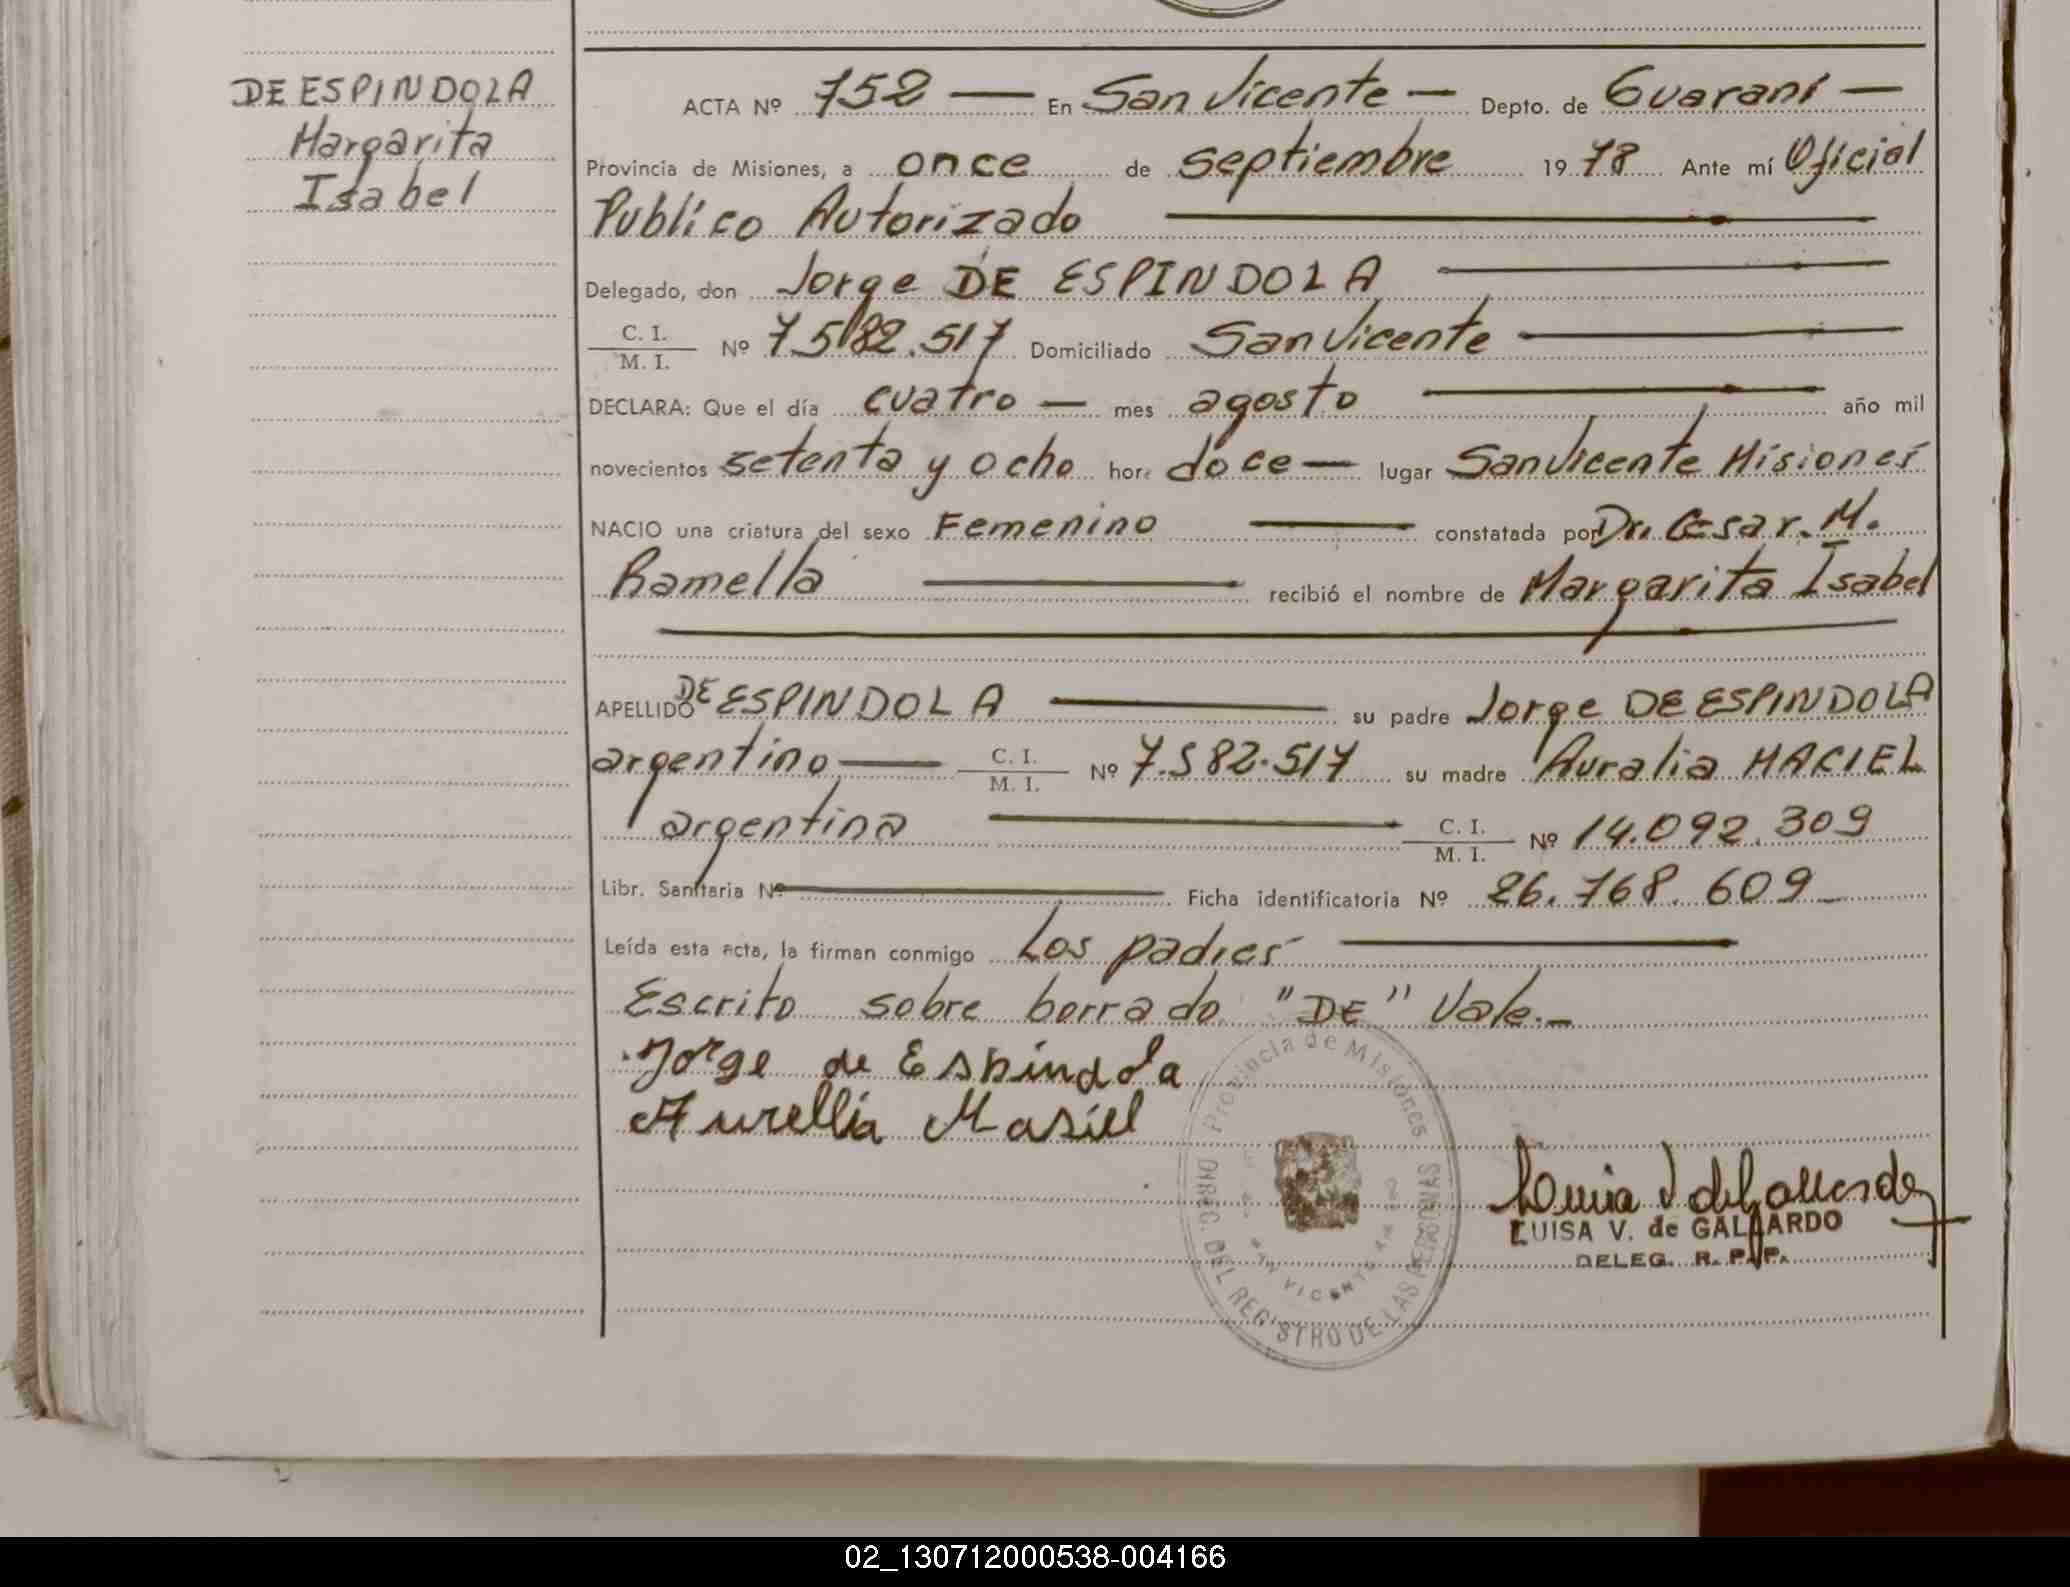 DE ESPINDOLA
Margarita
Isabel
ACTA Nº 752 — En San Vicente — Depto. de Guaraní —
Provincia de Misiones, a once de septiembre 1978 Ante mí Oficial
Publico Autorizado
Delegado, don Jorge DE ESPINDOLA
C. I.
M. I. Nº 7582.517 Domiciliado San Vicente
DECLARA: Que el día cuatro — mes agosto año mil
novecientos setenta y ocho hora doce — lugar San Vicente Misiones
NACIO una criatura del sexo Femenino constatada por Dr. Cesar. M.
Ramella recibió el nombre de Margarita Isabel
APELLIDO DE ESPINDOLA su padre Jorge DE ESPINDOLA
argentino — C. I.
M. I. Nº 7.582.517 su madre Auralia MACIEL
argentina C. I.
M. I. Nº 14.092.309
Libr. Sanitaria Nº Ficha identificatoria Nº 26.768.609
Leída esta acta, la firman conmigo Los padres
Escrito sobre borrado "DE" Vale.—
Jorge de Espindola
Aurellia Masiel
Provincia de Misiones
DEL REGISTRO DE LAS PERSONAS
SAN VICENTE
LUISA V. de GALLARDO
DELEG. R. P. P.
02_130712000538-004166